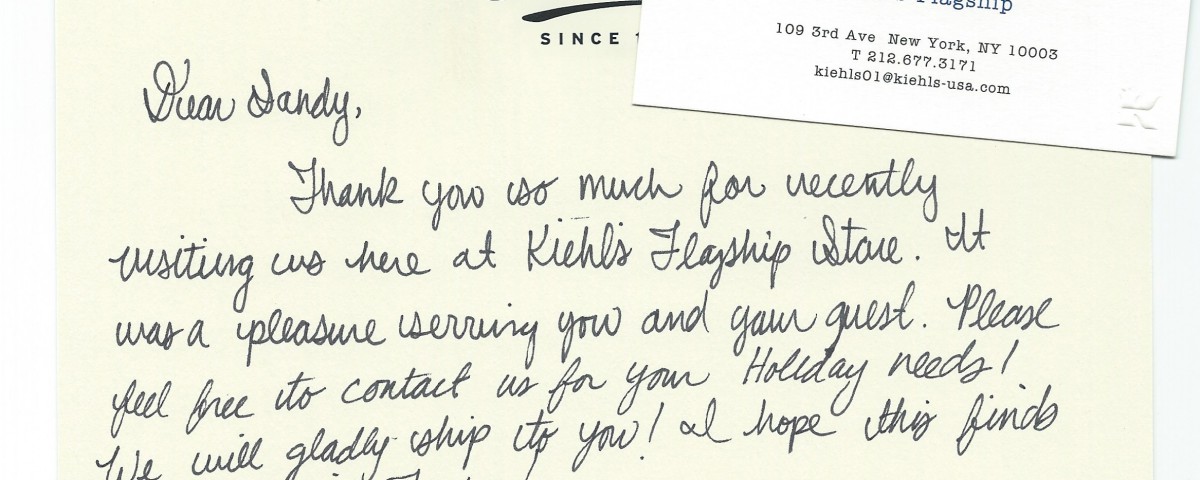 SINCE
Flagship
109 3rd Ave New York, NY 10003
T 212.677.3171
kiehls01@kiehls-usa.com
Dear Sandy,
Thank you so much for recently
visiting us here at Kiehl's Flagship Store. It
was a pleasure serving you and your guest. Please
feel free to contact us for your Holiday needs!
We will gladly ship to you! I hope this finds